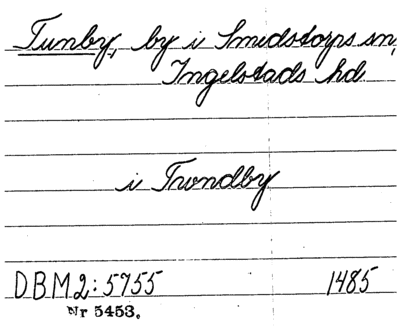 Tunby, by i Smedstorps sn,
Ingelstads hd
i Twndby
DBM2:5755 1485
Nr 5453.